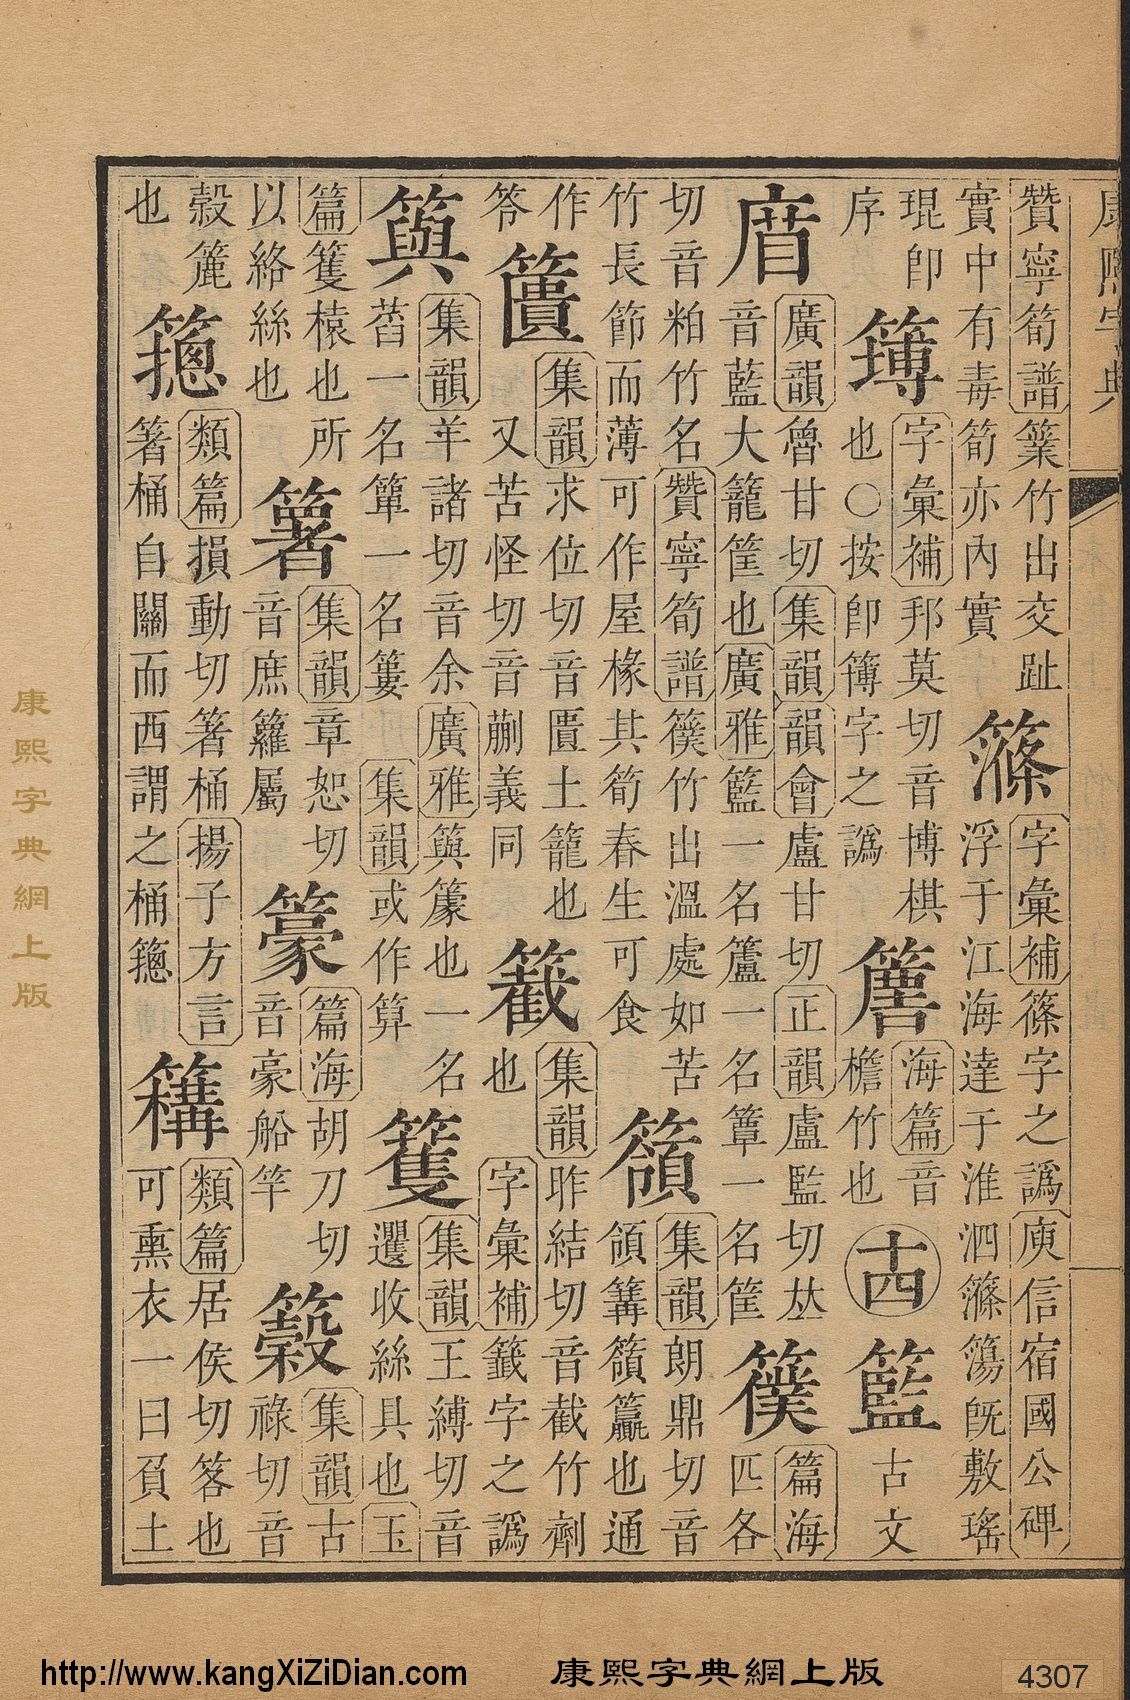 康熙字典
贊寧筍譜篥竹出交趾
實中有毒筍亦內實
字彙補篠字之譌庾信宿國公碑
浮于江海達于淮泗簜旣敷瑤
琨卽
序
簙
字彙補邦莫切音博棋
也○按卽簙字之譌
海篇音
檐竹也
十四
籃
古文
廣韻魯甘切集韻韻會盧甘切正韻盧監切𠀤
音藍大籠筐也廣雅籃一名籚一名簟一名筐
篇海
匹各
切音粕竹名贊寧筍譜竹出溫處如苦
竹長節而薄可作屋椽其筍春生可食
集韻朗鼎切音
領篝籯也通
作
答
籄
集韻求位切音匱土籠也
又苦怪切音蒯義同
集韻昨結切音截竹劑
也
字彙補籖字之譌
籅
集韻羊諸切音余廣雅籅篆也一名
萏一名箄一名簍集韻或作筭
籆
集韻王縛切音
籰收絲具也玉
篇籆榬也所
以絡絲也
集韻章恕切
音庶籮屬
籇
篇海胡刀切
音豪船竿
集韻古
祿切音
縠簏
也
類篇損動切箸桶揚子方言
箸桶自關而西謂之桶
類篇居侯切笿也
可熏衣一曰負土
康熙字典網上版
http://www.kangXiZiDian.com
康熙字典網上版
4307